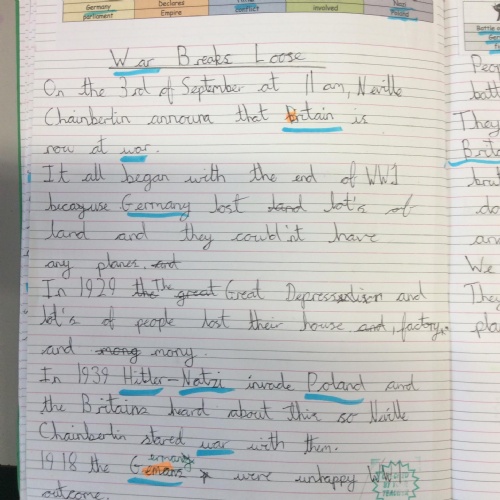 Germany Declares Nazi
parliament Empire conflict involved Poland
War Breaks Loose
On the 3rd of September at 11 am, Neville
Chainbertin announa that Britain is
now at war.
It all began with the end of WW1
becayuse Germany lost land lot's of
land and they could'nt have
any planes. and
In 1929 the The great Great Depresssion and
lot's of people lost their house and, factory
and mong mony.
In 1939 Hitler-Natzi invade Poland and
the Britains heard about this so Neville
Chainbertin stared war with them.
1918 the Gemans ermany were unhappy WW1
outcome.
Battle
Peop
batt
They
Brita
brut
do
an
We
They
pla